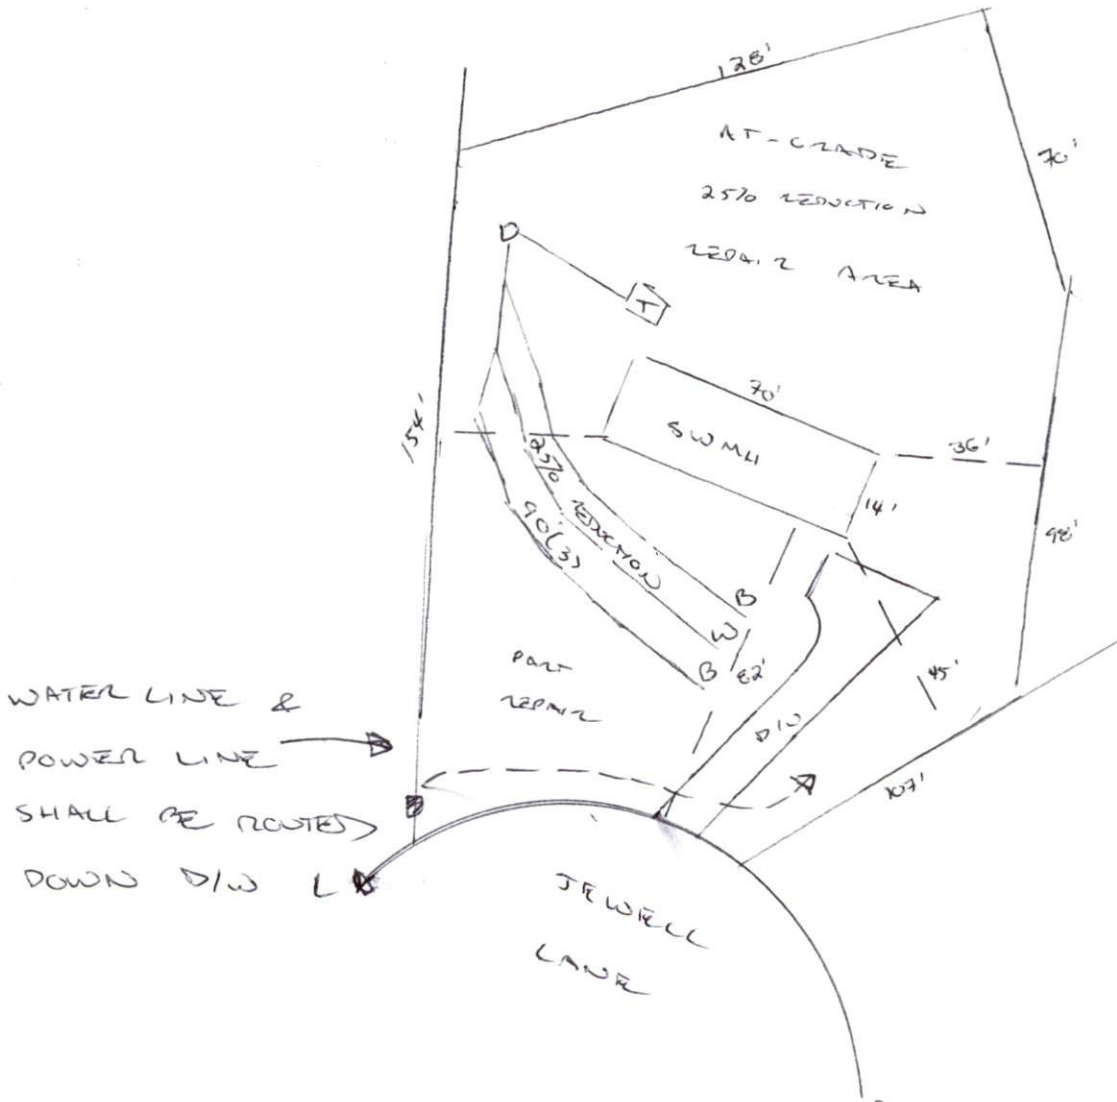 128'
AT-GRADE
25% REDUCTION
REPAIR AREA
70'
D
T
70'
SWMH
36'
14'
154'
98'
25% REDUCTION
90'(3)
B
W
B
82'
45'
PART
REPAIR
D/W
107'
WATER LINE &
POWER LINE
SHALL BE ROUTED
DOWN D/W
JEWELL
LANE